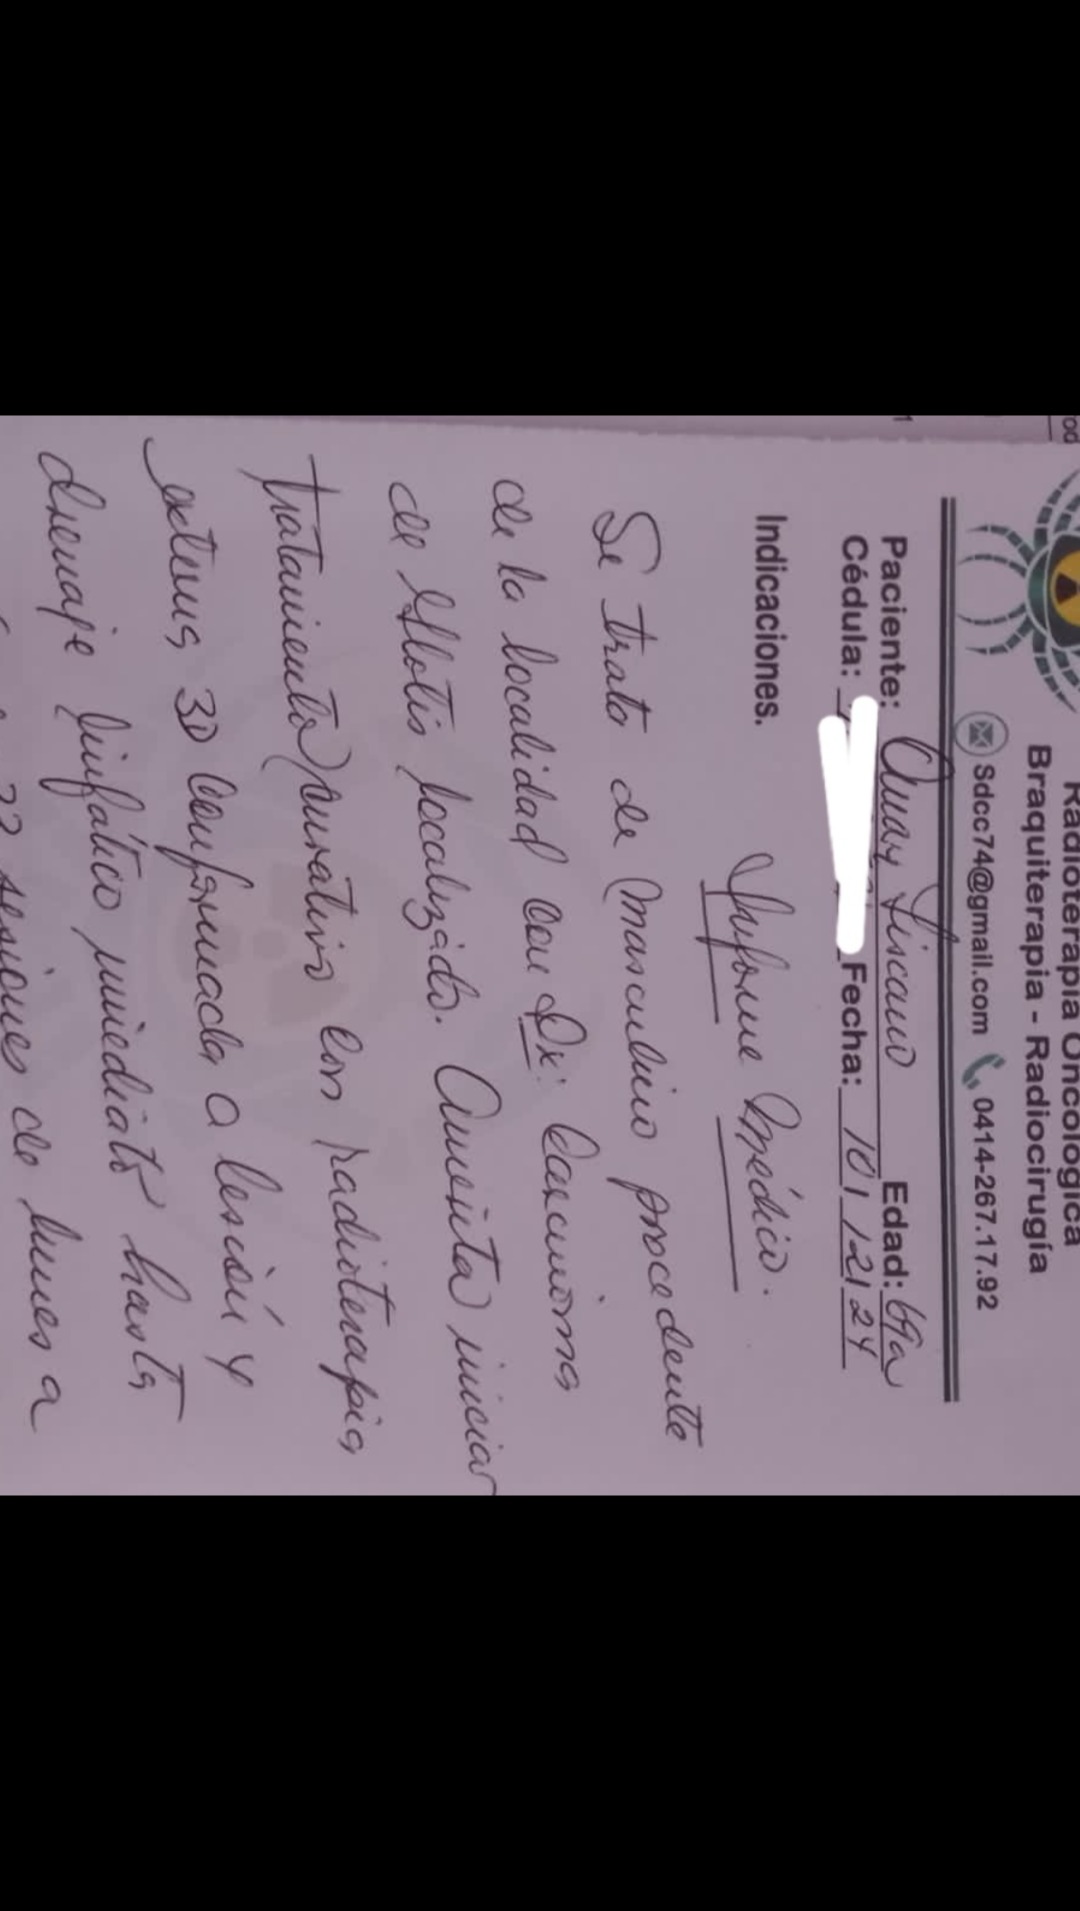 Radioterapia Oncológica
Braquiterapia - Radiocirugía
Sdcc74@gmail.com 0414-267.17.92
Paciente: Omar Liscano Edad: 69a
Cédula: Fecha: 10/12/24
Indicaciones.
Informe Médico.
Se trata de masculino procedente
de la localidad con Dx: Carcinoma
de Glotis localizado. Amerita iniciar
tratamiento curativo con radioterapia
externa 3D conformada a lesión y
drenaje linfático inmediato hasta
sesiones de lunes a